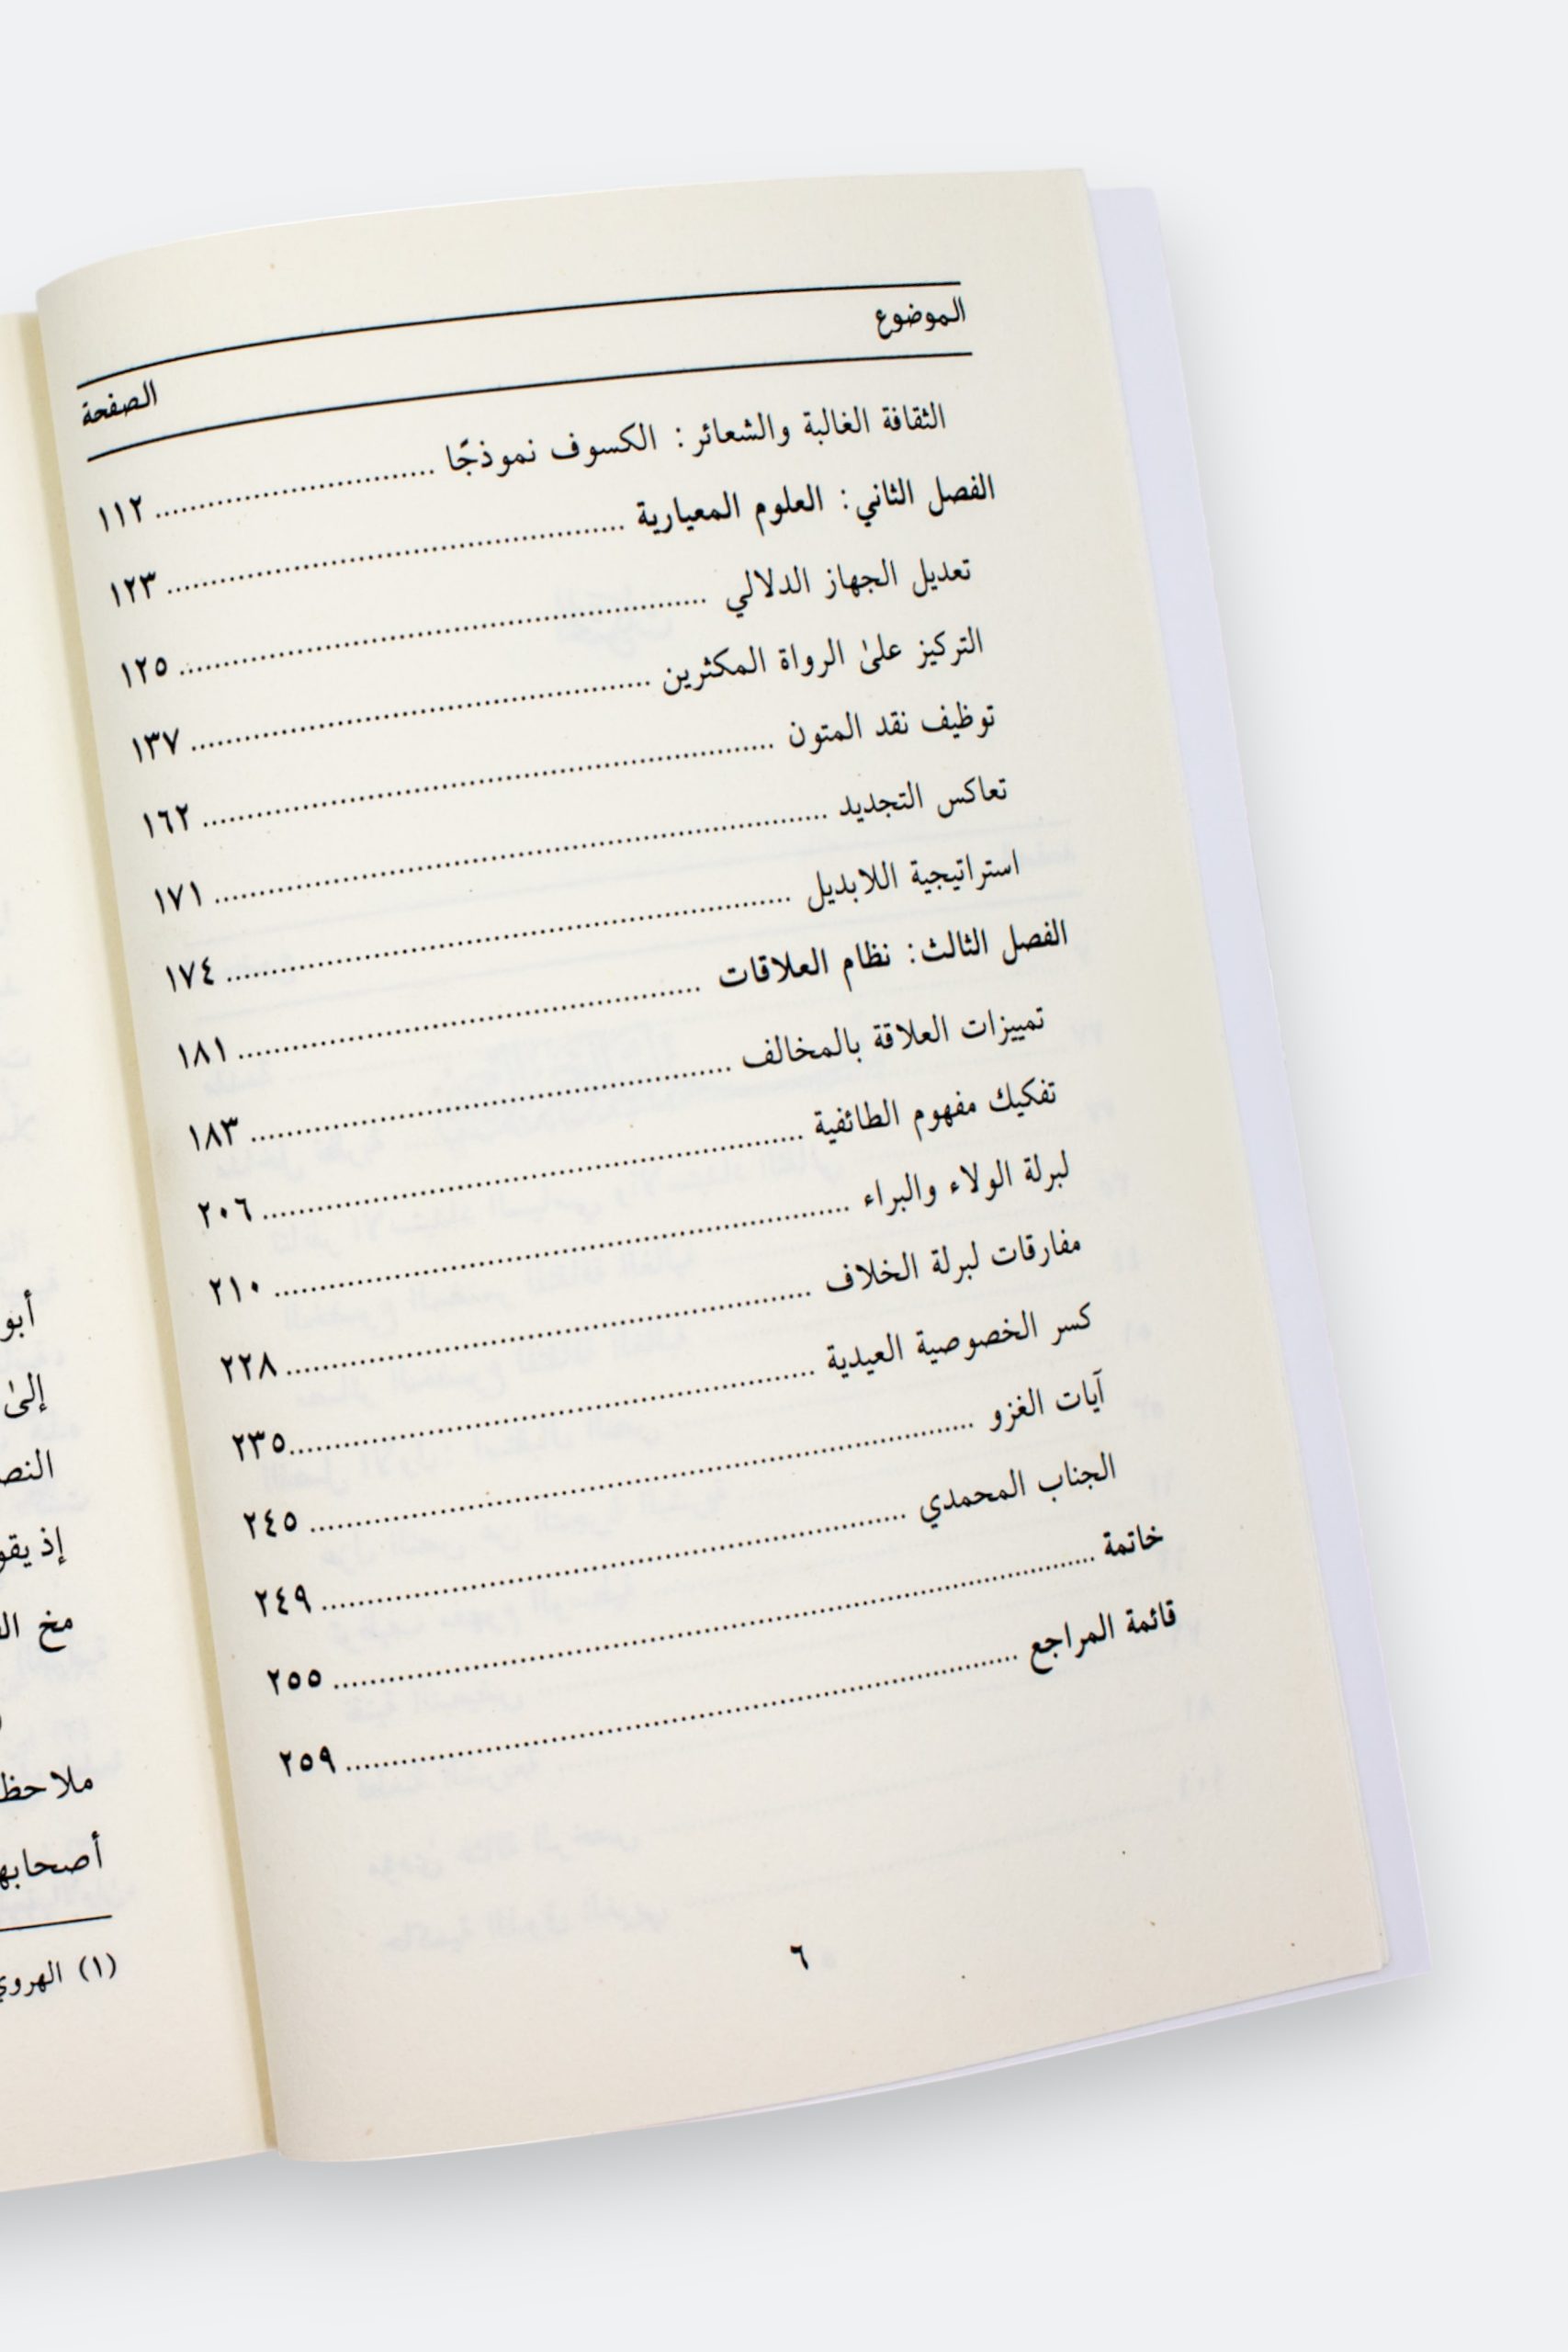 الموضوع الصفحة
الثقافة الغالبة والشعائر: الكسوف نموذجًا ........ ١١٢
الفصل الثاني: العلوم المعيارية ........ ١٢٣
تعديل الجهاز الدلالي ........ ١٢٥
التركيز علىٰ الرواة المكثرين ........ ١٣٧
توظيف نقد المتون ........ ١٦٢
تعاكس التجديد ........ ١٧١
استراتيجية اللابديل ........ ١٧٤
الفصل الثالث: نظام العلاقات ........ ١٨١
تمييزات العلاقة بالمخالف ........ ١٨٣
تفكيك مفهوم الطائفية ........ ٢٠٦
لبرلة الولاء والبراء ........ ٢١٠
مفارقات لبرلة الخلاف ........ ٢٢٨
كسر الخصوصية العيدية ........ ٢٣٥
آيات الغزو ........ ٢٤٥
الجناب المحمدي ........ ٢٤٩
خاتمة ........ ٢٥٥
قائمة المراجع ........ ٢٥٩
٦
أبو
إلىٰ
إذ يقو
مخ
(١)